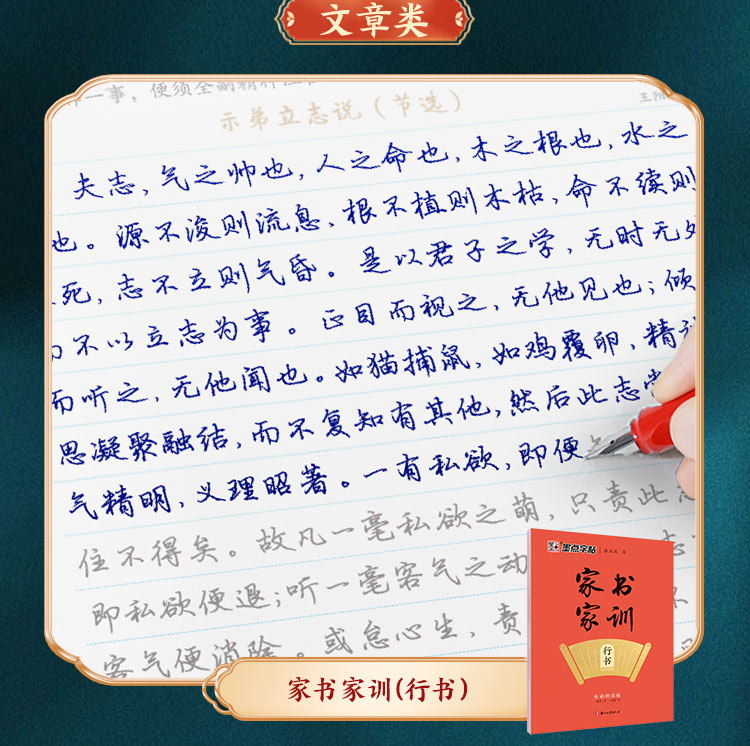 文章类
一事，便须全副精神
示弟立志说（节选）
王阳
夫志，气之帅也，人之命也，木之根也，水之
也。源不浚则流息，根不植则木枯，命不续则
死，志不立则气昏。是以君子之学，无时无处
不以立志为事。正目而视之，无他见也；倾
而听之，无他闻也。如猫捕鼠，如鸡覆卵，精神
思凝聚融结，而不复知有其他，然后此志常
气精明，义理昭著。一有私欲，即便
住不得矣。故凡一毫私欲之萌，只责此志
即私欲便退；听一毫客气之动
客气便消除。或怠心生，责
墨点字帖
家书
家训
行书
家书家训(行书)